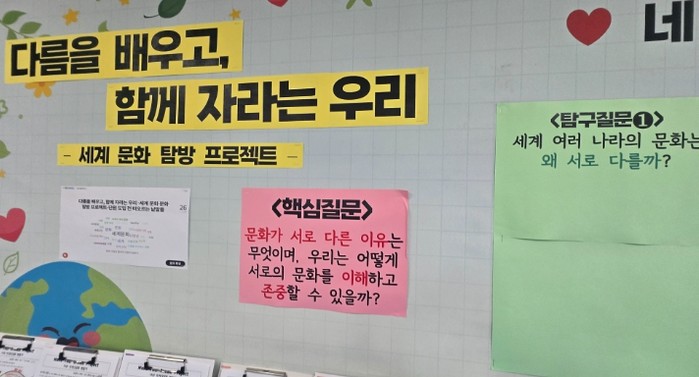 다름을 배우고,
함께 자라는 우리
- 세계 문화 탐방 프로젝트 -
네
<탐구질문❶>
세계 여러 나라의 문화는
왜 서로 다를까?
26
<핵심질문>
문화가 서로 다른 이유는
무엇이며, 우리는 어떻게
서로의 문화를 이해하고
존중할 수 있을까?